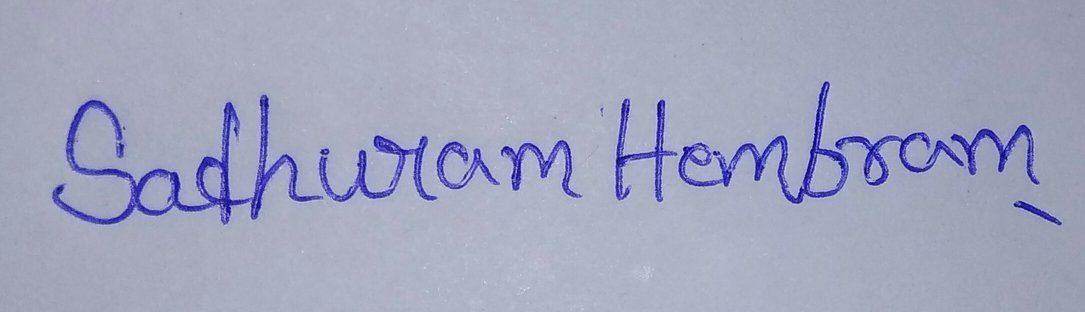 Sadhuram Hembram